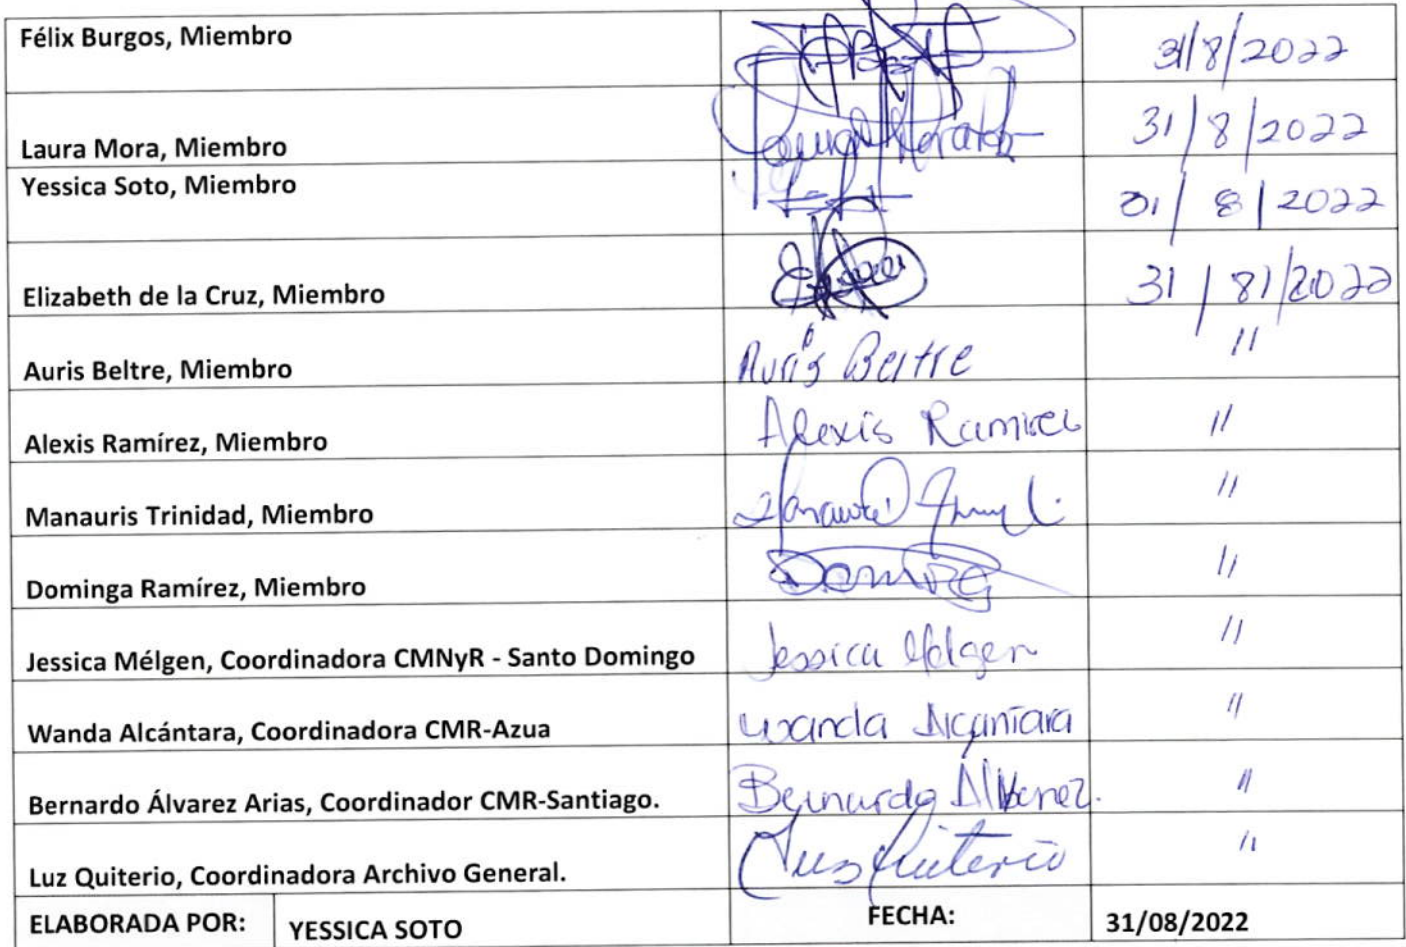 Félix Burgos, Miembro 31/8/2022
Laura Mora, Miembro 31/8/2022
Yessica Soto, Miembro 31/8/2022
Elizabeth de la Cruz, Miembro 31/8/2022
Auris Beltre, Miembro Auris Beltre "
Alexis Ramírez, Miembro Alexis Ramirez "
Manauris Trinidad, Miembro "
Dominga Ramírez, Miembro "
Jessica Mélgen, Coordinadora CMNyR - Santo Domingo Jessica Melgen "
Wanda Alcántara, Coordinadora CMR-Azua Wanda Alcantara "
Bernardo Álvarez Arias, Coordinador CMR-Santiago. Bernardo Alvarez. "
Luz Quiterio, Coordinadora Archivo General. Luz Quiterio "
ELABORADA POR: YESSICA SOTO FECHA: 31/08/2022